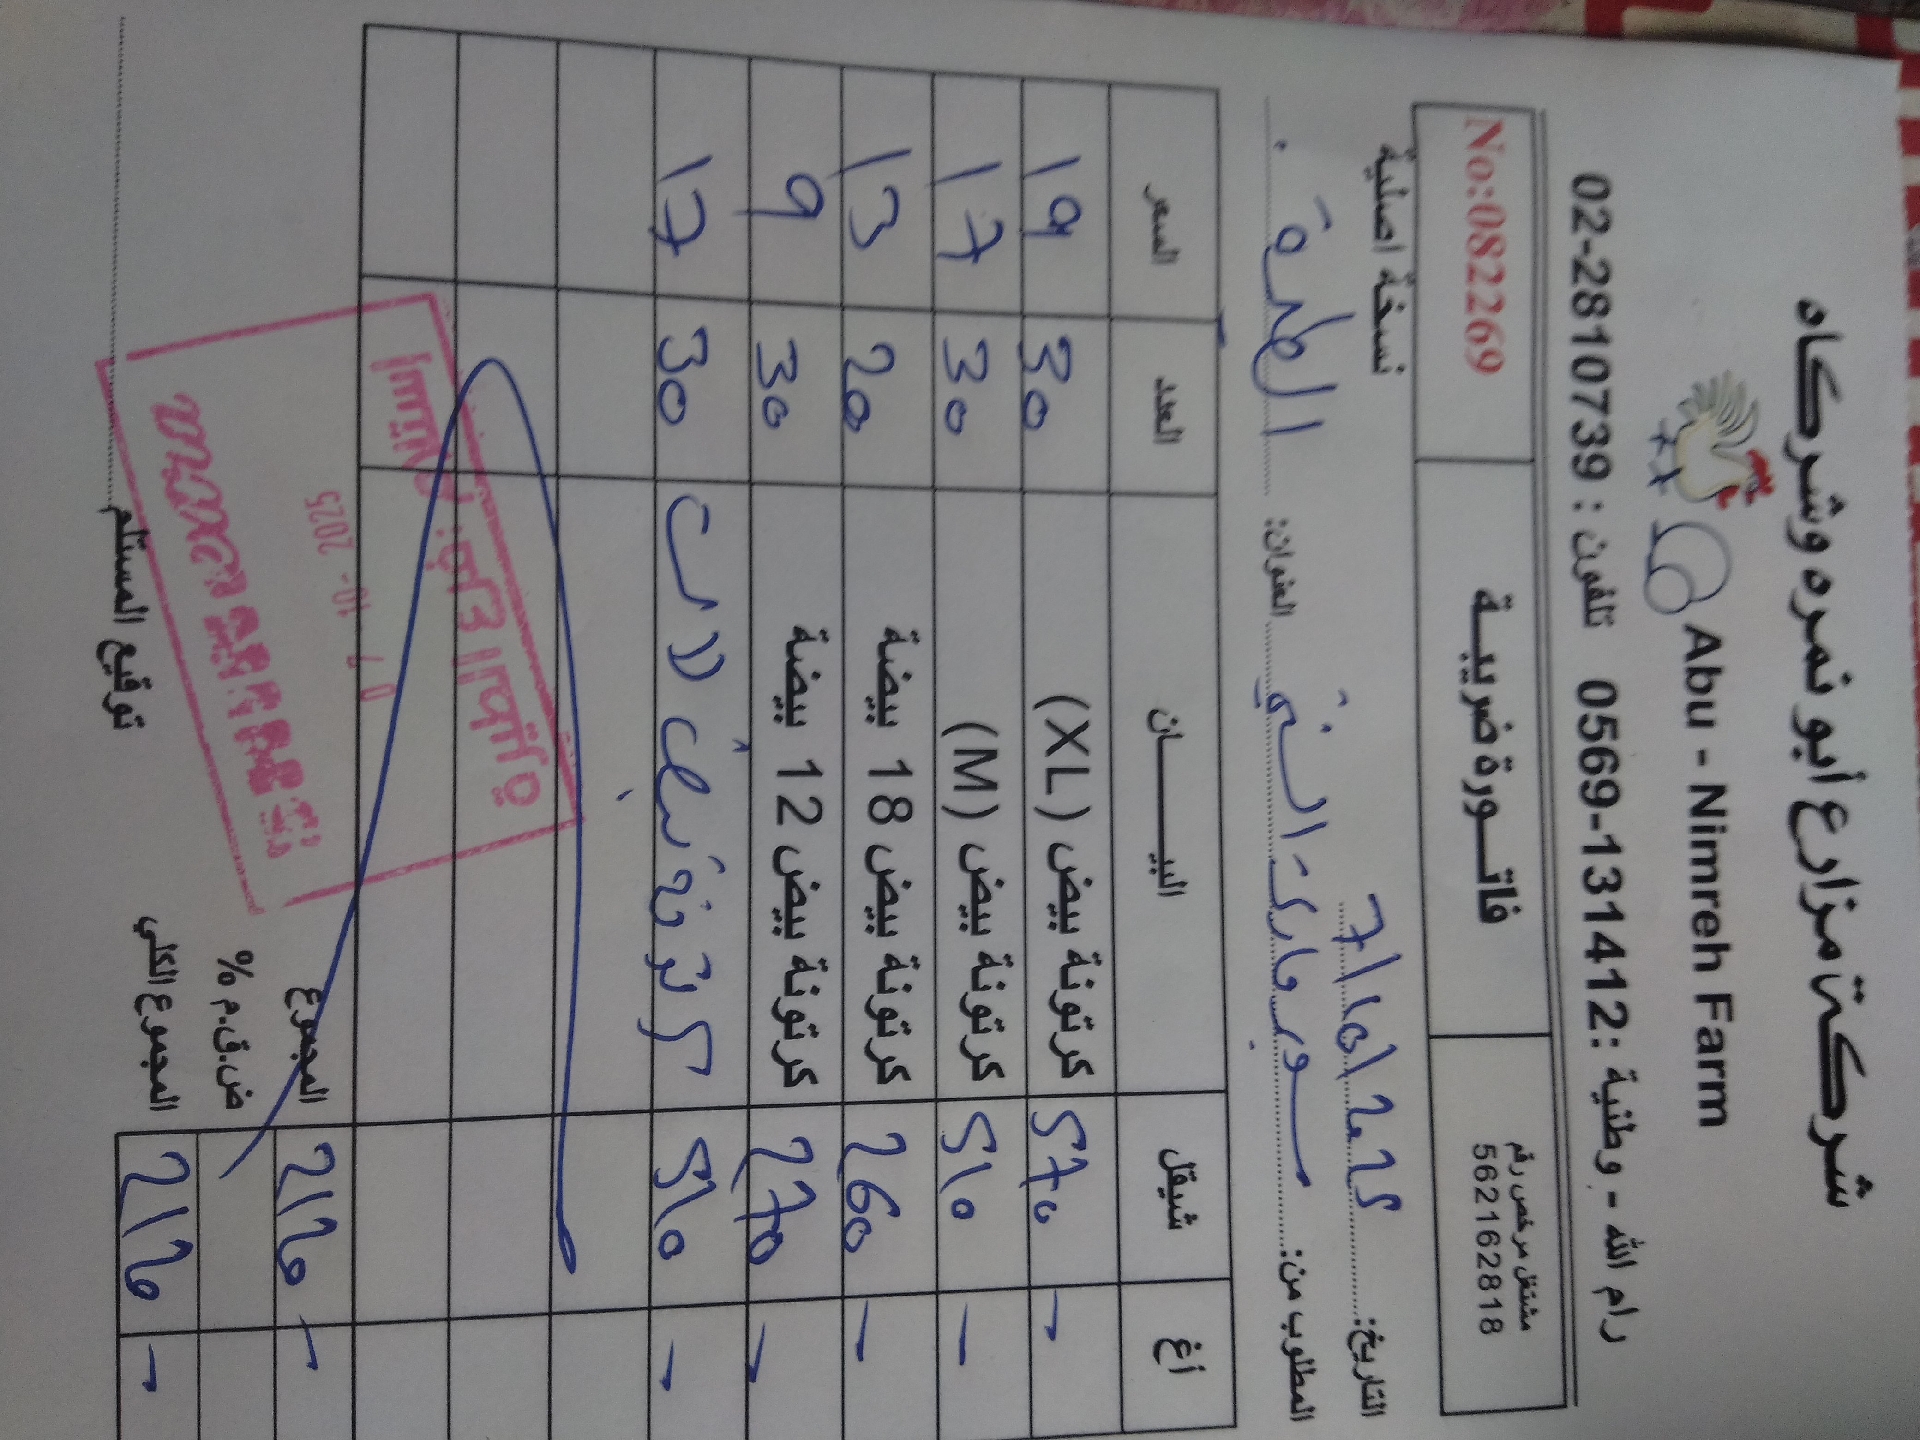 شركة مزارع أبو نمره وشركاه
Abu - Nimreh Farm
رام الله - وطنية : 0569-131412 تلفون : 02-2810739
مشتغل مرخص رقم
562162818
فاتورة ضريبية
No:082269
نسخة اصلية
التاريخ: 7/10/2025
المطلوب من: سوبر ماركت السني العنوان: الطيرة
شيقل أغ البيــــان العدد السعر
570 - كرتونة بيض (XL) 30 19
510 - كرتونة بيض (M) 30 17
260 - كرتونة بيض 18 بيضة 20 13
270 - كرتونة بيض 12 بيضة 30 9
510 - كرتونة بيض 30 17
2120 - المجموع
ض.ق.م %
2120 - المجموع الكلي
توقيع المستلم
7 -10- 2025